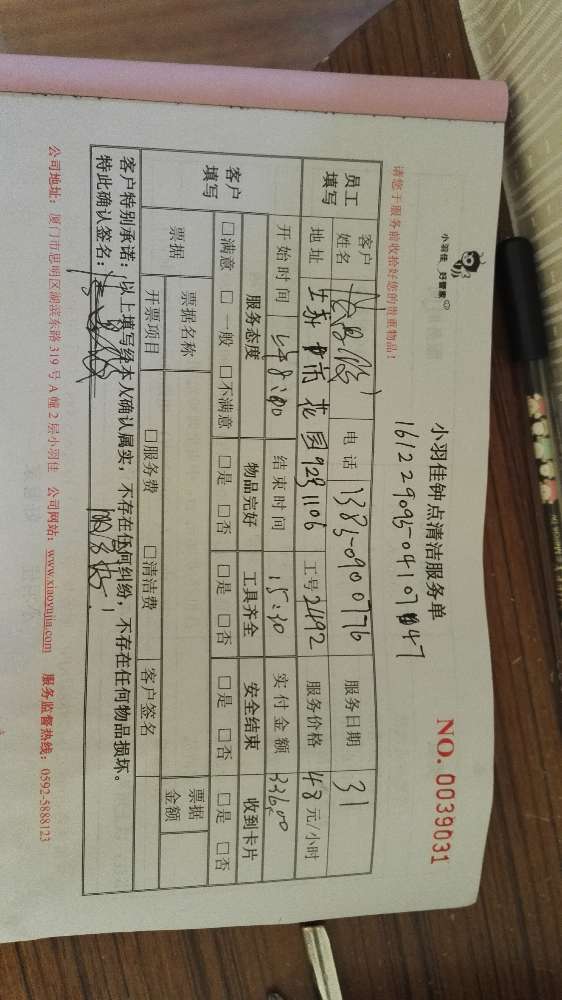 小羽佳 好管家
小羽佳钟点清洁服务单
NO. 0039031
请您于服务前收拾好您的贵重物品!
员工填写
客户姓名
电话 13850900776
服务日期 31
地址 花园 9291106
工号 2492
服务价格 48 元/小时
开始时间 8:00
结束时间 15:30
实付金额 336.00
客户填写
服务态度 物品完好 工具齐全 安全结束 收到卡片
□满意 □一般 □不满意 □是 □否 □是 □否 □是 □否 □是 □否
票据 票据名称 票据金额
开票项目 □服务费 □清洁费 客户签名
客户特别承诺:以上填写经本人确认属实,不存在任何纠纷,不存在任何物品损坏。
特此确认签名:
公司地址:厦门市思明区湖滨东路 319 号 A 幢 2 层小羽佳 公司网站:www.xiaoyujia.com 服务监督热线:0592-5888123